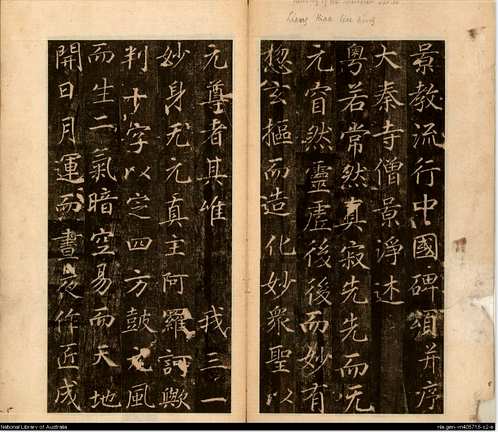 景教流行中國碑頌并序
大秦寺僧景淨述
粵若常然真寂先先而无
元窅然靈虛後後而妙有
惣玄摳而造化妙衆聖以
元尊者其唯 我三一
妙身无元真主阿羅訶歟
判十字以定四方鼓元風
而生二氣暗空易而天地
開日月運而晝夜作匠成
National Library of Australia